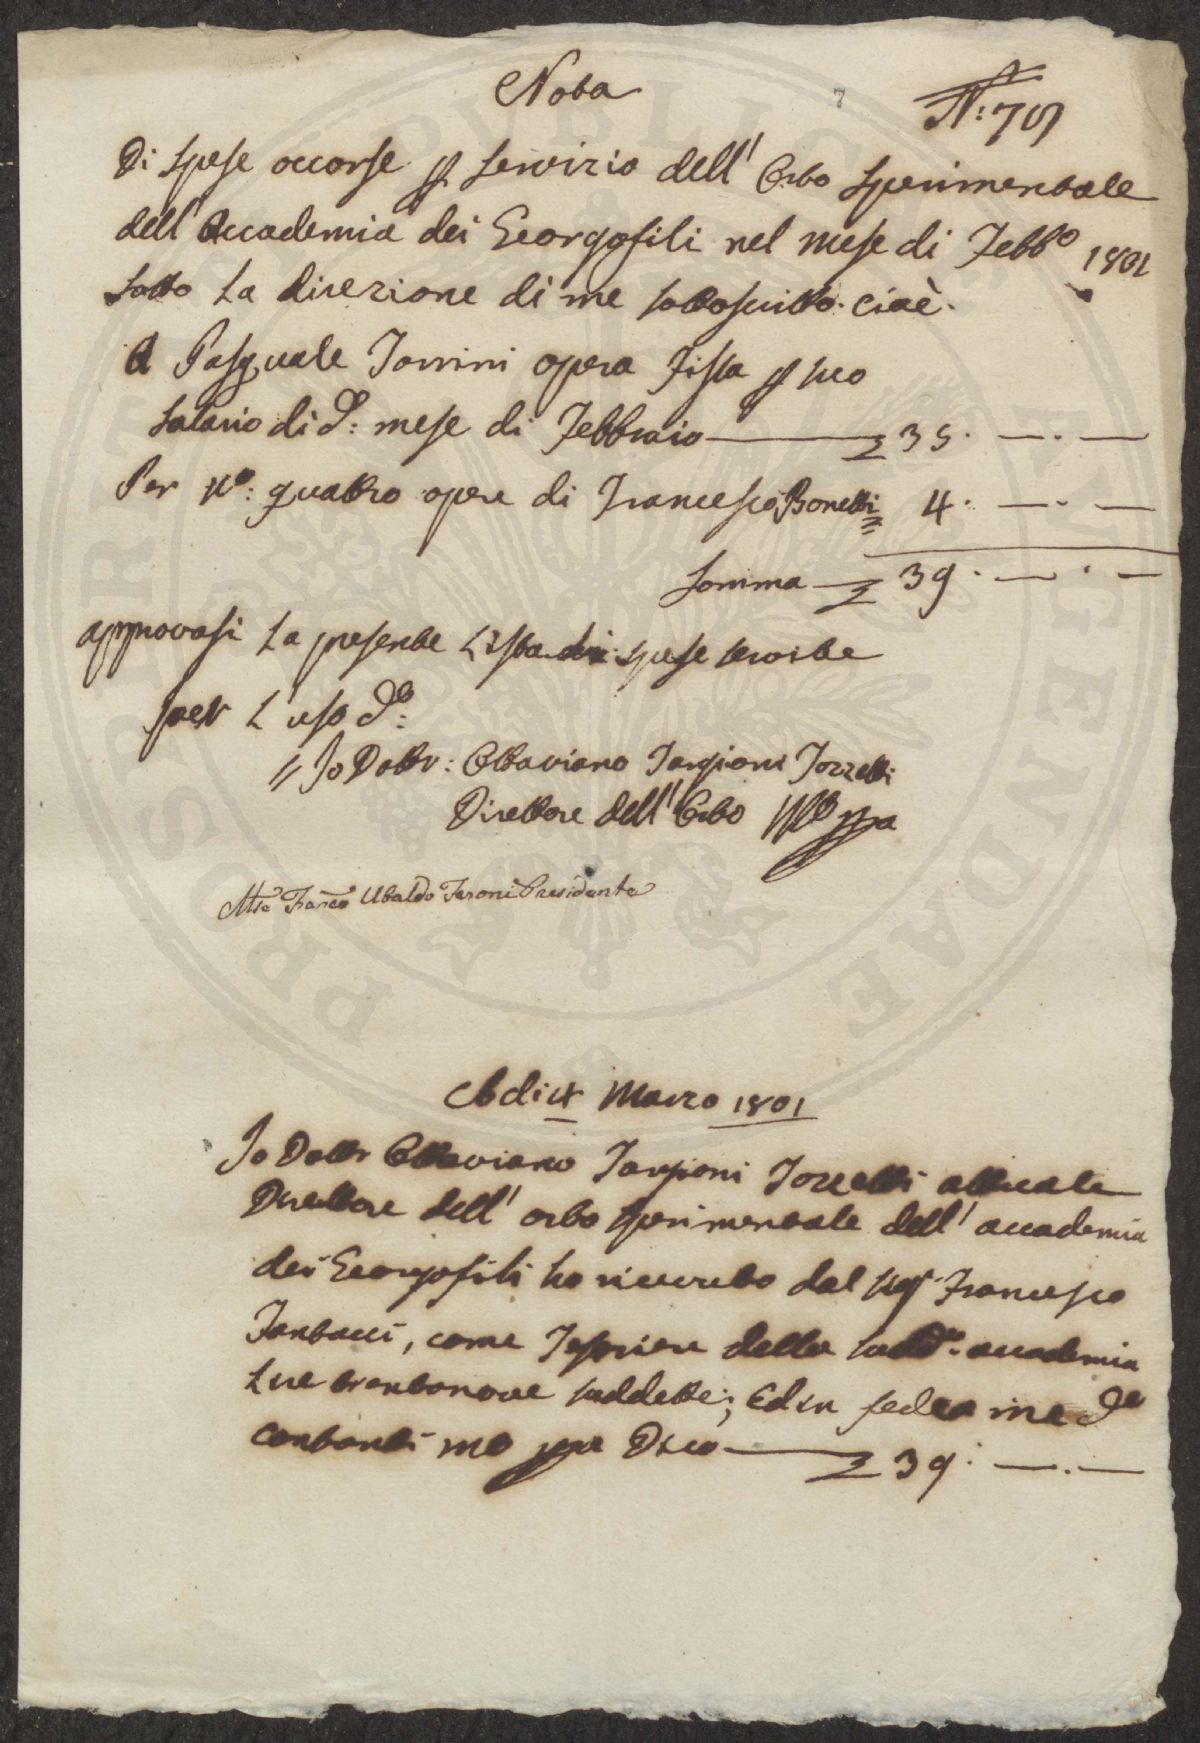 Nota
7
N: 79
Di spese occorse p servizio dell' Orto sperimentale
dell' Accademia dei Georgofili nel mese di Febb.o 1801
sotto la direzione di me sottoscritto. cioè.
A Pasquale Torrini opera fissa p suo
salario di d.o: mese di Febbraio — £ 35. —. —
Per n.o: quattro opere di Francesco Bonetti 4. —. —
Somma — £ 39. —. —
approvasi la presente Lista di spese servite
per l'uso d.o:
Io Dottr: Ottaviano Targioni Tozzetti
Direttore dell' Orto mo ppa
Mse Franco Ubaldo Feroni Presidente
PROSPERITATI PVBLICAE AVGENDAE
Adi 4 Marzo 1801
Io Dottr Ottaviano Targioni Tozzetti attuale
Direttore dell' orto sperimentale dell' accademia
dei Georgofili ho ricevuto dal Sigr Francesco
Tantacci, come Tesoriere della sudd.a accademia
Lire trentanove suddette; Ed in fede
contanti mo ppa Dico — £ 39. —. —